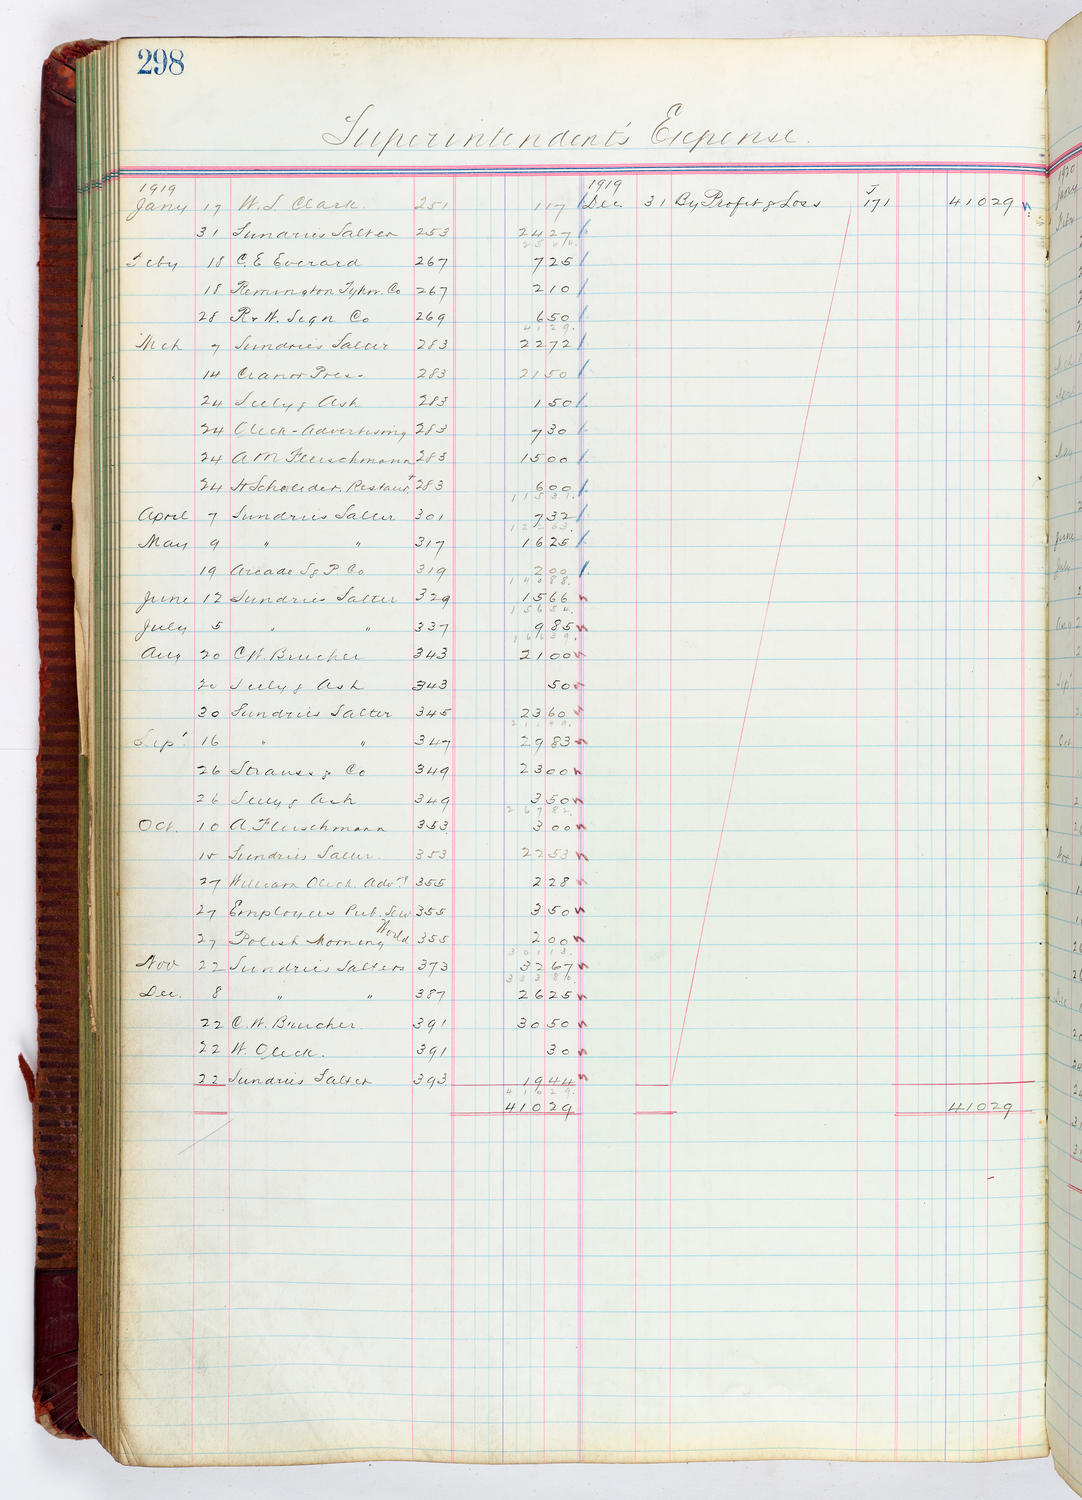 298
Superintendent's Expense.
1919 1919
Jany 17 W. L. Clark. 251 117 Dec 31 By Profit & Loss J 171 41029
31 Sundries Salter 253 2427
2544.
Feby 18 C. E. Everard 267 725
18 Remington Typwr. Co 267 210
28 R & W. Sign Co 269 650
4129.
Mch 7 Sundries Salter 283 2272
14 Cranor Pres. 283 2150
24 Seely & Ash 283 150
24 Oleck - Advertising 283 730
24 A M Fleischmann 283 1500
24 H Schneider. Restaurt 283 600
11531.
April 7 Sundries Salter 301 732
12263.
May 9 " " 317 1625
19 Arcade S & P. Co 319 200
14088.
June 12 Sundries Salter 329 1566
15654.
July 5 " " 337 985
16639.
Aug 20 C W. Brucher 343 2100
20 Seely & Ash 343 50
30 Sundries Salter 345 2360
21149.
Sep' 16 " " 347 2983
26 Strauss & Co 349 2300
26 Seely & Ash 349 350
26782.
Oct. 10 A. Fleischmann 353 300
15 Sundries Salter. 353 2253
27 William Oleck. Advt 355 228
27 Employers Pub. Serv 355 350
27 Polish Morning World 355 200
30113.
Nov 22 Sundries Salters 373 3267
33380.
Dec. 8 " " 387 2625
22 C. W. Brucher. 391 3050
22 W. Oleck. 391 30
22 Sundries Salter 393 1944
41029.
41029 41029
1920